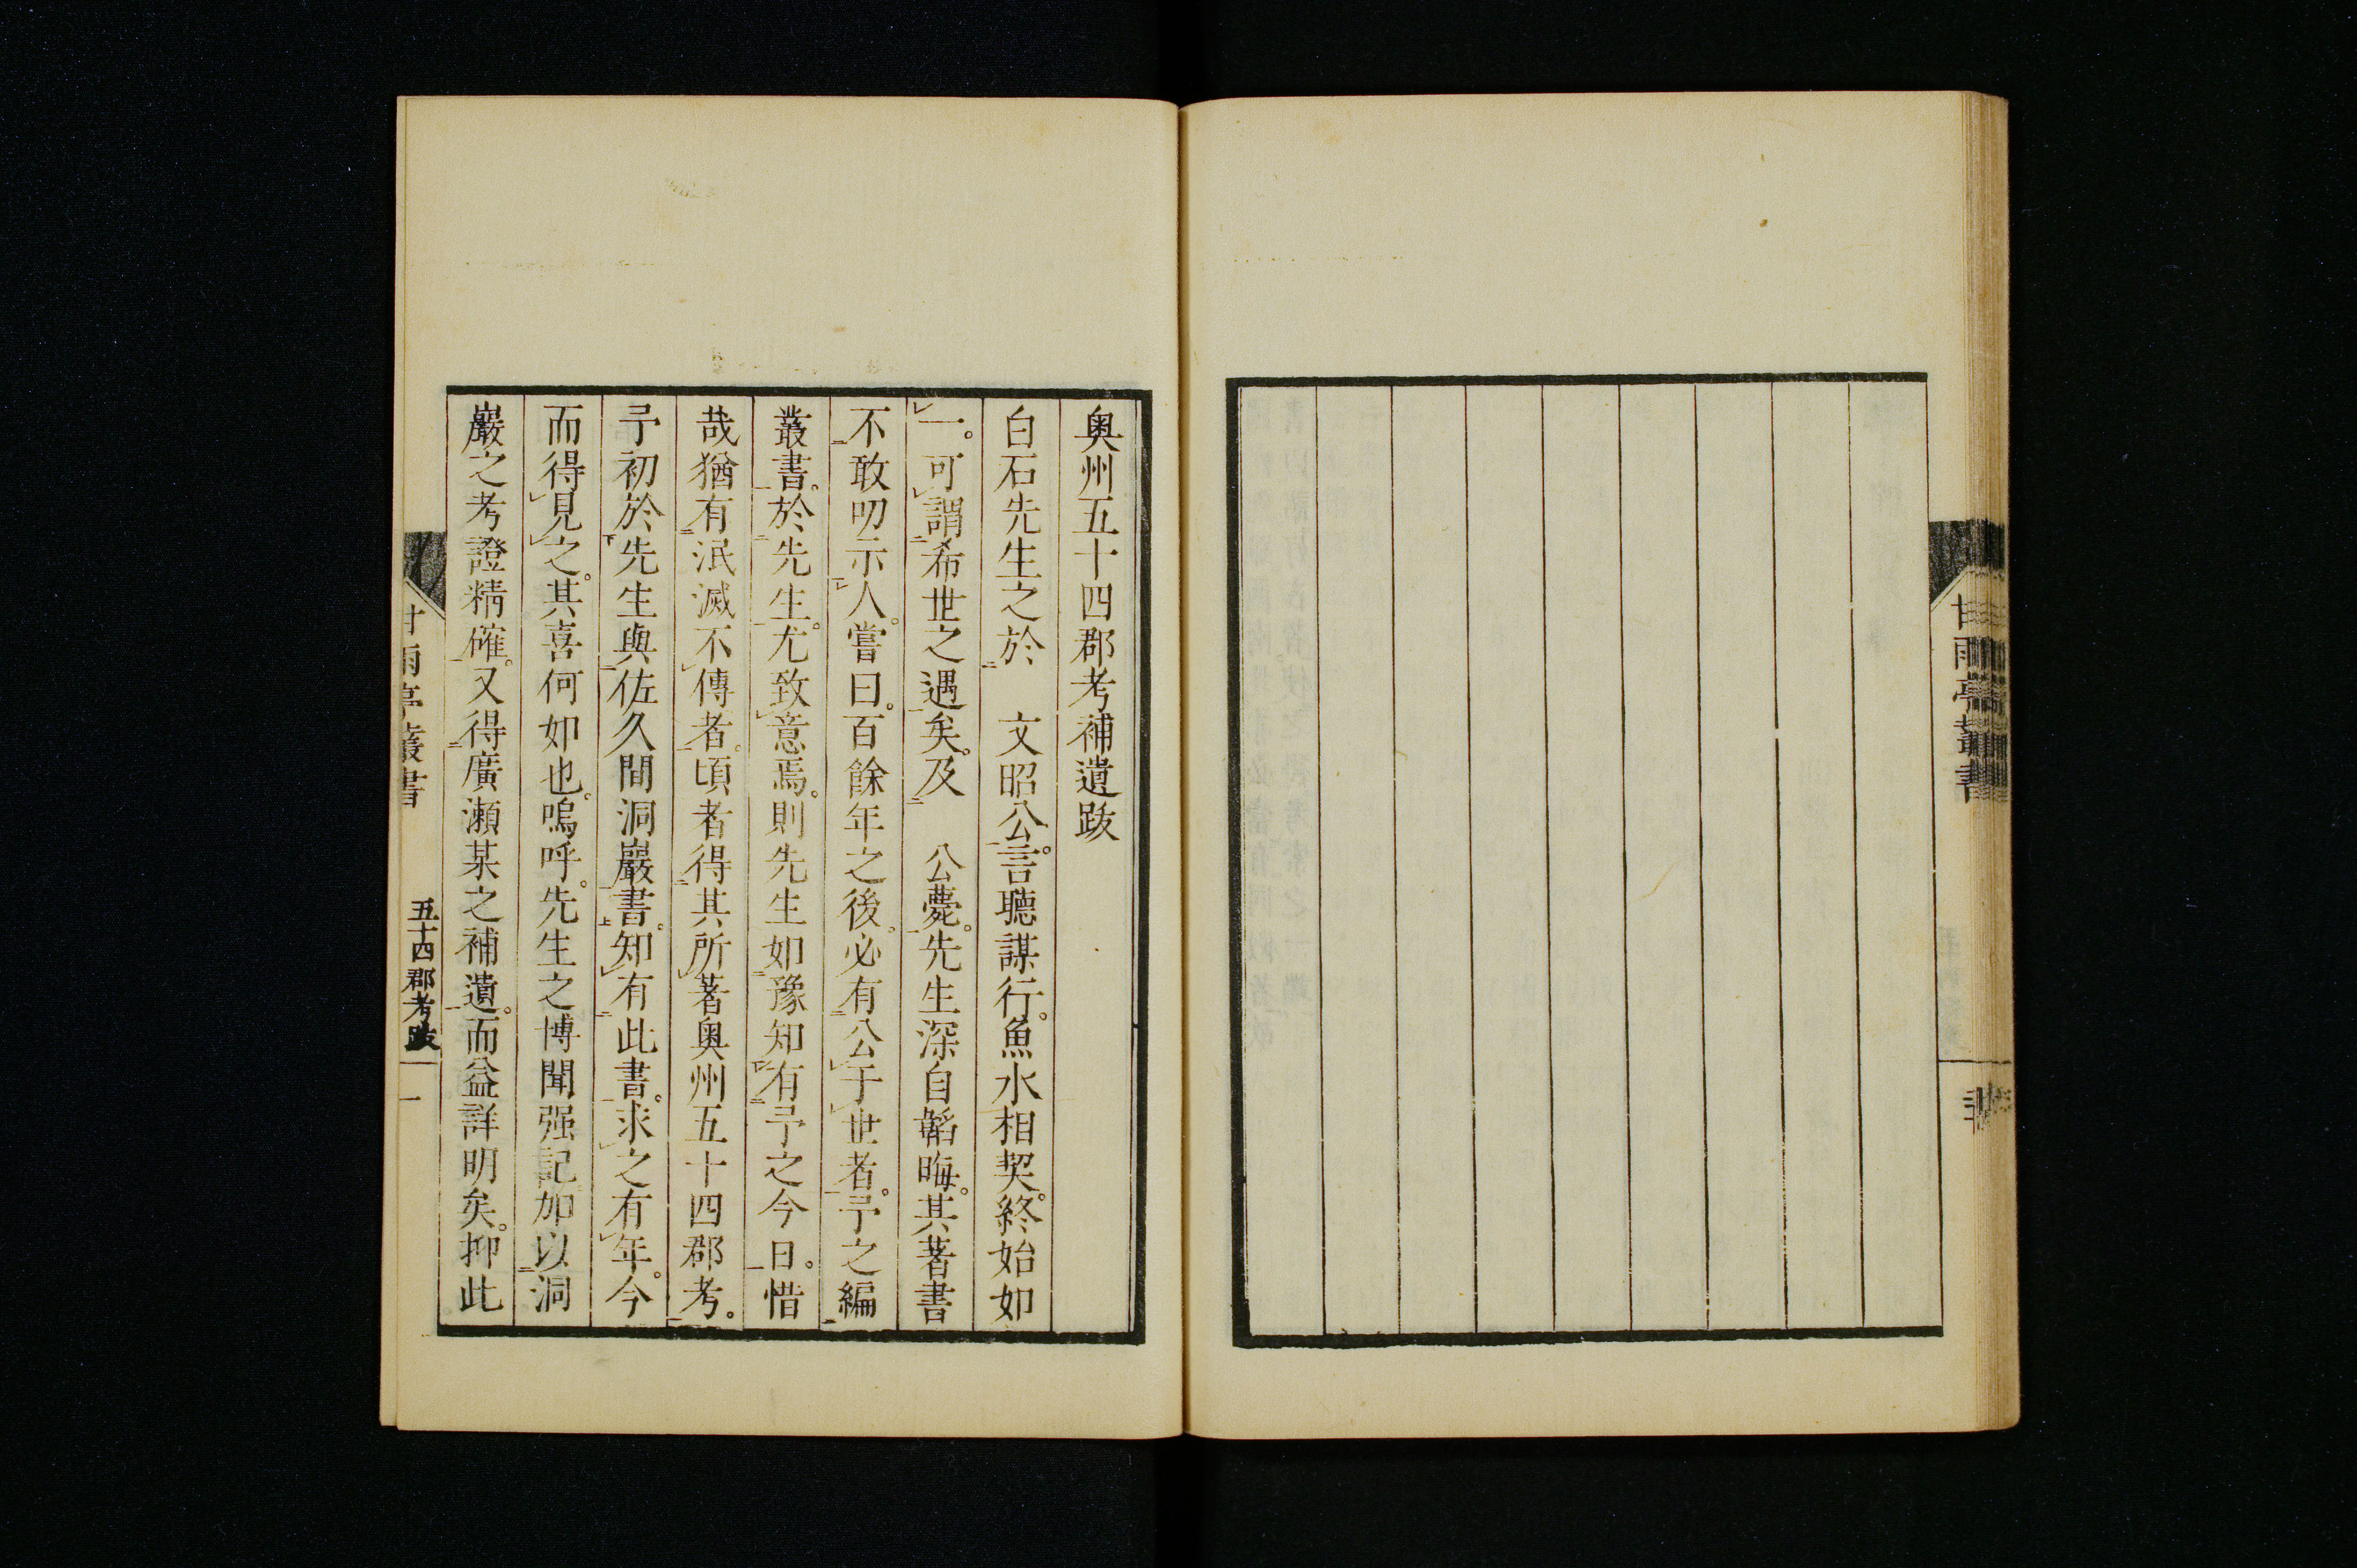 甘雨亭叢書
奥州五十四郡考補遺跋
白石先生之於　文昭公。言聽謀行。魚水相契。終始如
一。可謂希世之遇矣。及　公薨。先生深自韜晦。其著書
不敢叨示人。嘗曰。百餘年之後。必有公于世者。予之編
叢書。於先生。尤致意焉。則先生如豫知有予之今日。惜
哉猶有泯滅不傳者。頃者得其所著奥州五十四郡考。
予初於先生與佐久間洞巖書。知有此書。求之有年。今
而得見之。其喜何如也。嗚呼。先生之博聞强記加以洞
巖之考證精確。又得廣瀬某之補遺。而益詳明矣。抑此
甘雨亭叢書
五十四郡考跋
一